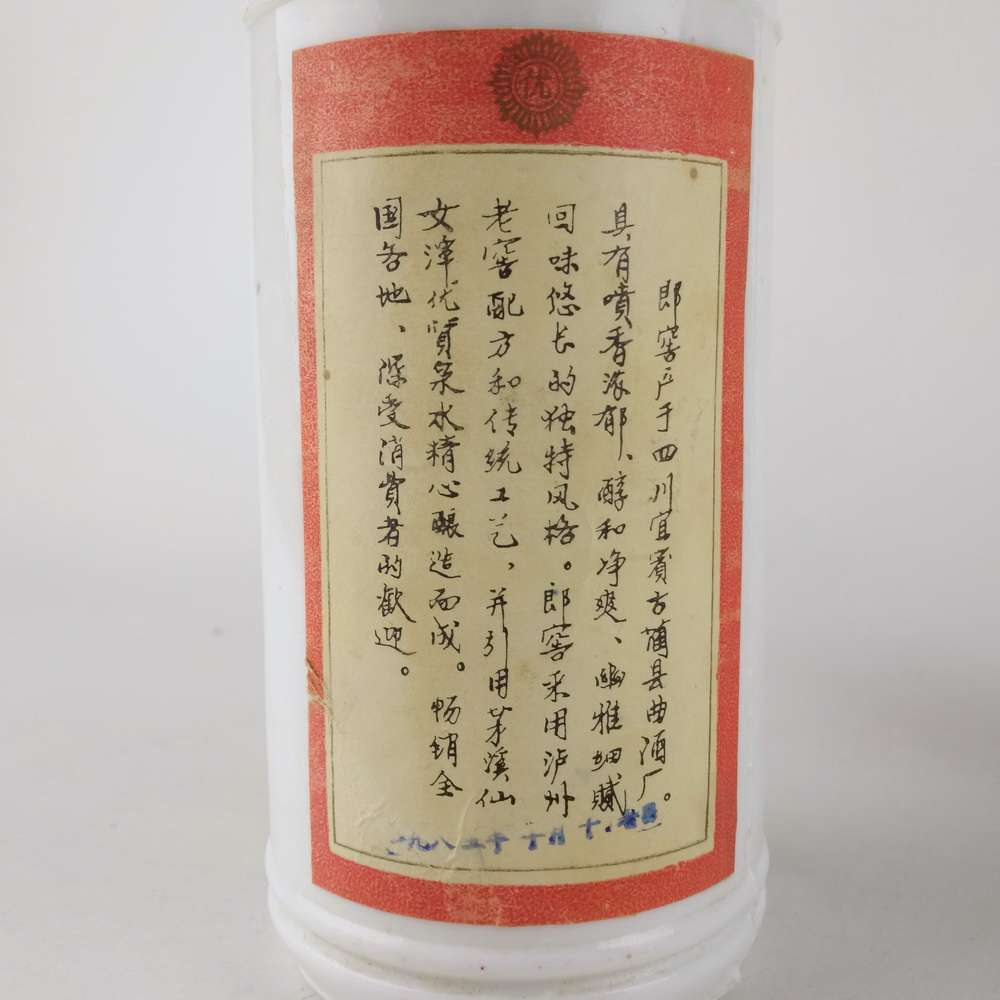 优
郎窖产于四川宜賓古蔺县曲酒厂。
具有噴香浓郁、醇和净爽、幽雅细腻
回味悠长的独特风格。郎窖采用泸州
老窖配方和传统工艺，并引用茅溪仙
女潭优質泉水精心酿造而成。畅銷全
国各地、深受消費者的歡迎。
一九八二年十月十